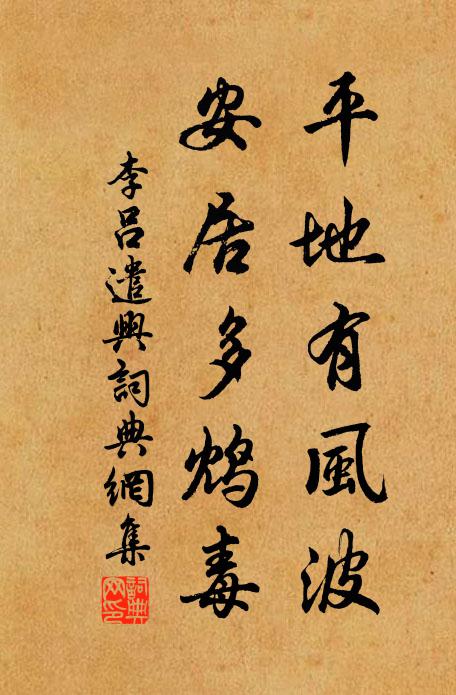 平地有風波
安居多鴆毒
李呂遣興詞典網集
詞典
网印